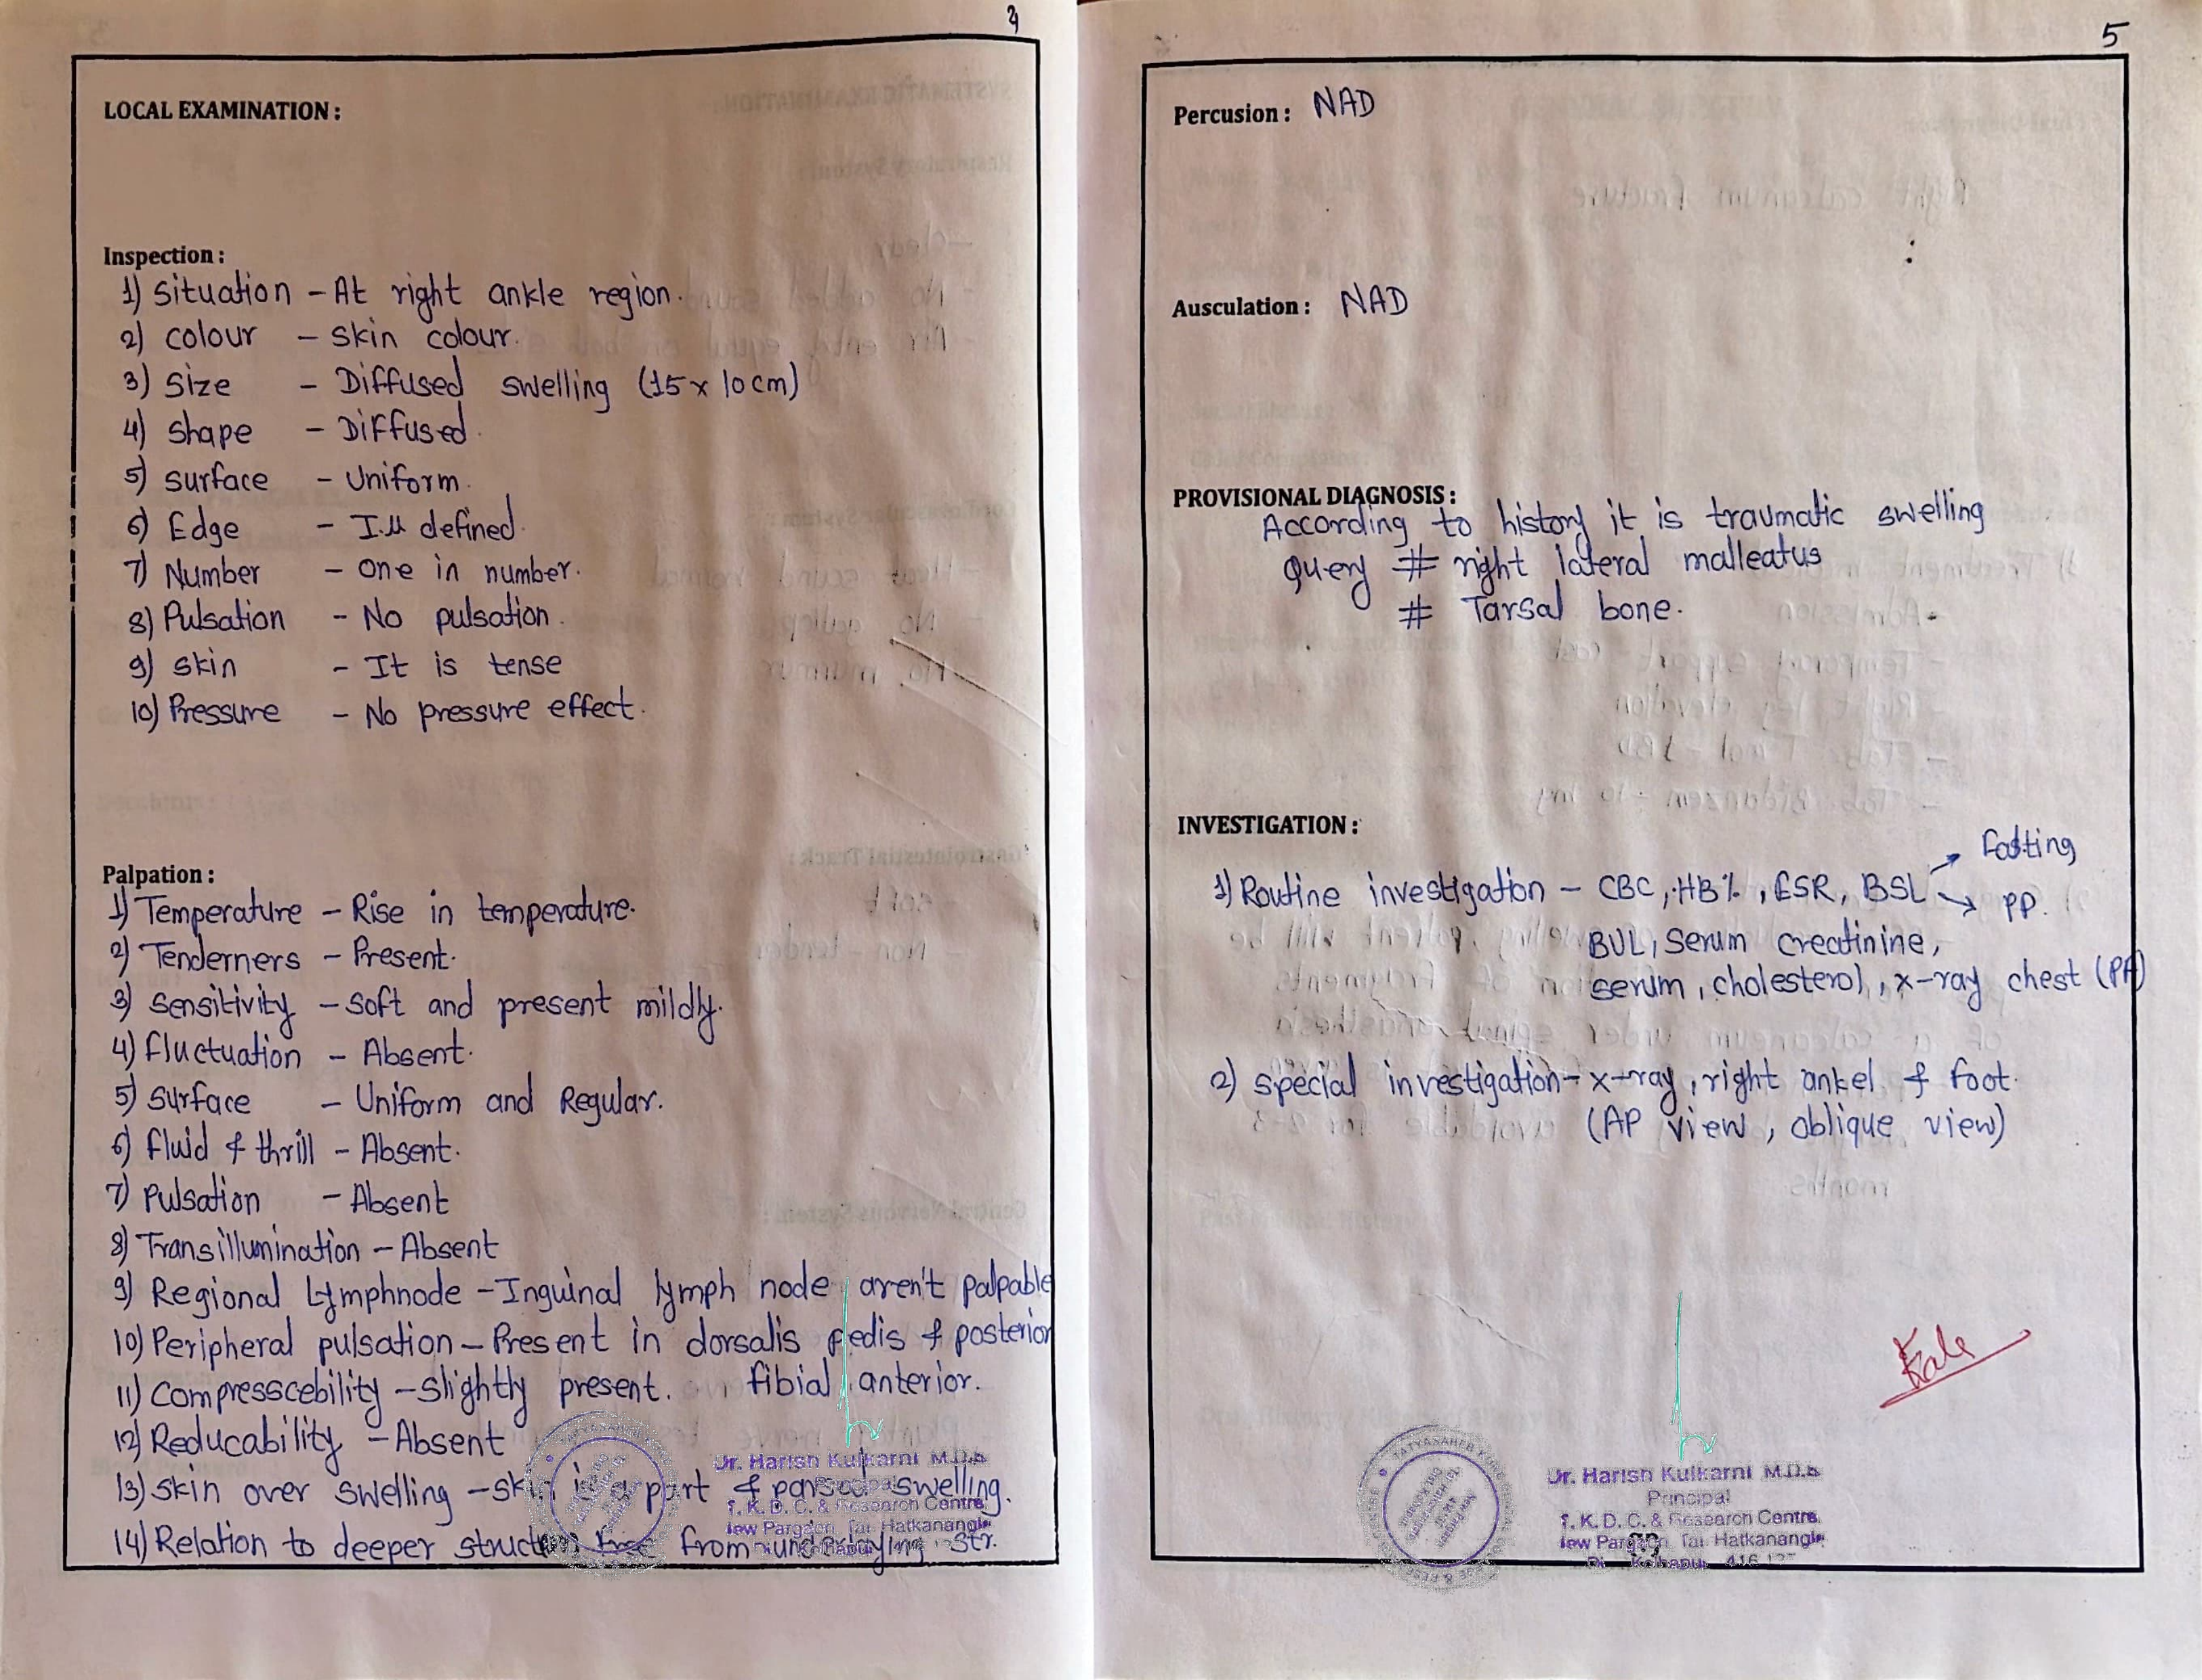 LOCAL EXAMINATION :
Inspection :
1) Situation - At right ankle region.
2) colour - skin colour.
3) Size - Diffused swelling (15 x 10 cm)
4) shape - Diffused.
5) surface - Uniform.
6) Edge - Ill defined.
7) Number - one in number.
8) Pulsation - No pulsation.
9) skin - It is tense
10) Pressure - No pressure effect.
Palpation :
1) Temperature - Rise in temperature.
2) Tenderners - Present.
3) sensitivity - soft and present mildly.
4) fluctuation - Absent.
5) surface - Uniform and Regular.
6) fluid & thrill - Absent.
7) pulsation - Absent
8) Transillumination - Absent
9) Regional Lymphnode - Inguinal lymph node aren't palpable
10) Peripheral pulsation - Present in dorsalis pedis & posterior
11) compresscebility - slightly present. fibial anterior.
12) Reducability - Absent
13) skin over swelling - skin is a part & swelling.
14) Relation to deeper from underlaying str.
Dr. Harish Kulkarni M.D.S
T. K. D. C. & Research Centre
New Pargaon, Tal. Hatkanangle
5
Percusion : NAD
Ausculation : NAD
PROVISIONAL DIAGNOSIS :
According to history it is traumatic swelling
Query # right lateral malleatus
# Tarsal bone.
INVESTIGATION :
Fasting
1) Routine investigation - CBC, HB%, ESR, BSL
PP.
BUL, Serum creatinine,
serum, cholesterol, x-ray chest (PA)
2) special investigation - x-ray, right ankel & foot.
(AP view, oblique view)
Dr. Harish Kulkarni M.D.S
Principal
T. K. D. C. & Research Centre
New Pargaon, Tal. Hatkanangle